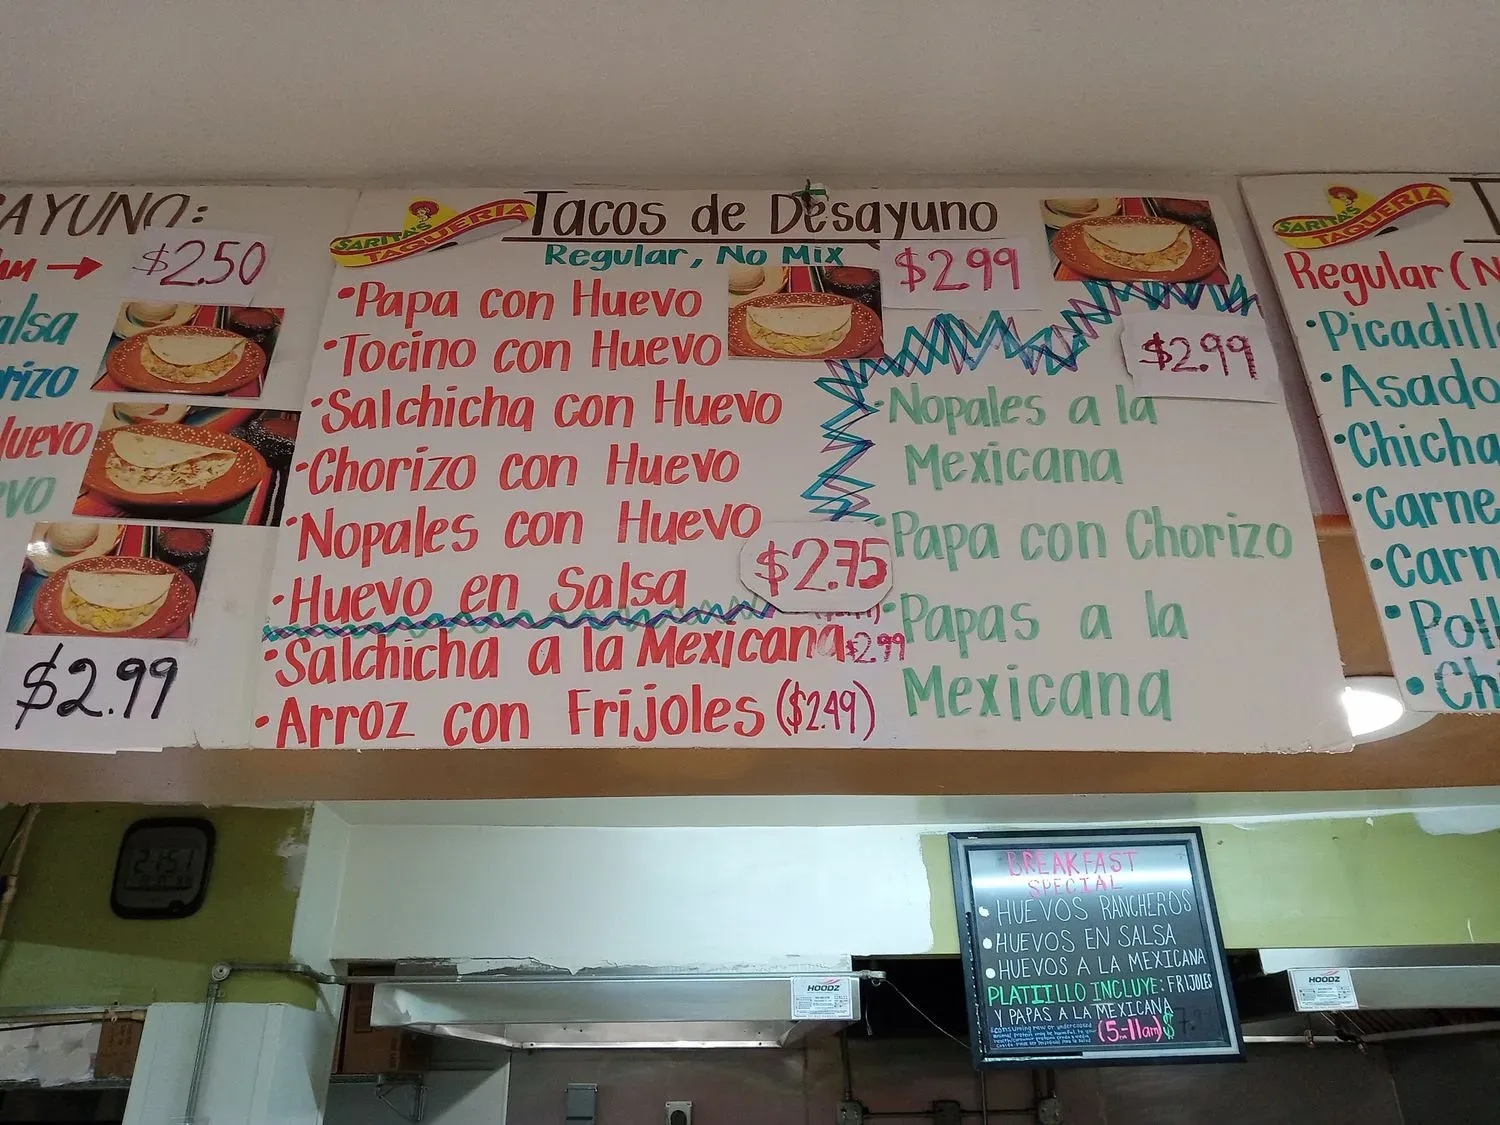 AYUNO:
$2.50
alsa
rizo
Huevo
evo
$2.99
SARITA'S
TAQUERIA
Tacos de Desayuno
Regular, No Mix
$2.99
•Papa con Huevo
•Tocino con Huevo
•Salchicha con Huevo
•Chorizo con Huevo
•Nopales con Huevo
•Huevo en Salsa
$2.75
•Salchicha a la Mexicana $2.99
•Arroz con Frijoles ($2.49)
$2.99
•Nopales a la
Mexicana
•Papa con Chorizo
•Papas a la
Mexicana
SARITA'S
TAQUERIA
Regular (N
•Picadill
•Asado
•Chicha
•Carne
•Carn
•Poll
•Ch
BREAKFAST
SPECIAL
• HUEVOS RANCHEROS
• HUEVOS EN SALSA
• HUEVOS A LA MEXICANA
PLATIILLO INCLUYE: FRIJOLES
Y PAPAS A LA MEXICANA
(5-11am) $
HOODZ
HOODZ